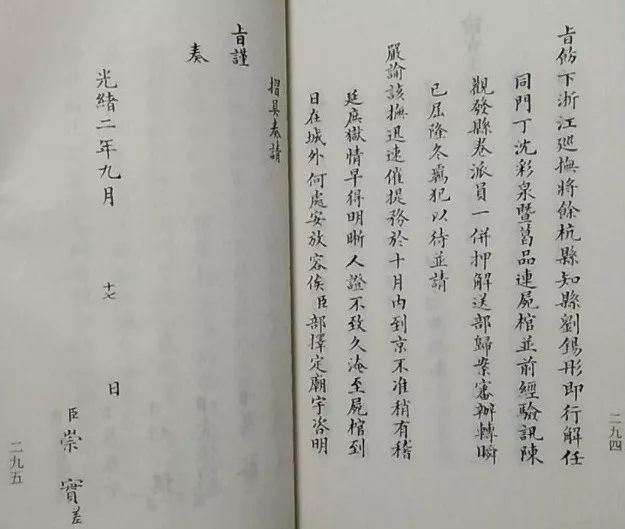 旨飭下浙江廵撫將餘杭縣知縣劉錫彤即行解任
同門丁沈彩泉暨葛品連屍棺並前經驗訊陳
觀發縣卷派員一併押解送部歸案審辦轉瞬
已屆隆冬羈犯以待並請
嚴諭該撫迅速催提務於十月內到京不准稍有稽
廷庶獄情早得明晰人證不致久淹至屍棺到
日在城外何處安放容俟臣部擇定廟宇咨明
二九四
摺具奏請
旨謹
奏
光緒二年九月 十七 日
臣崇實差
二九五